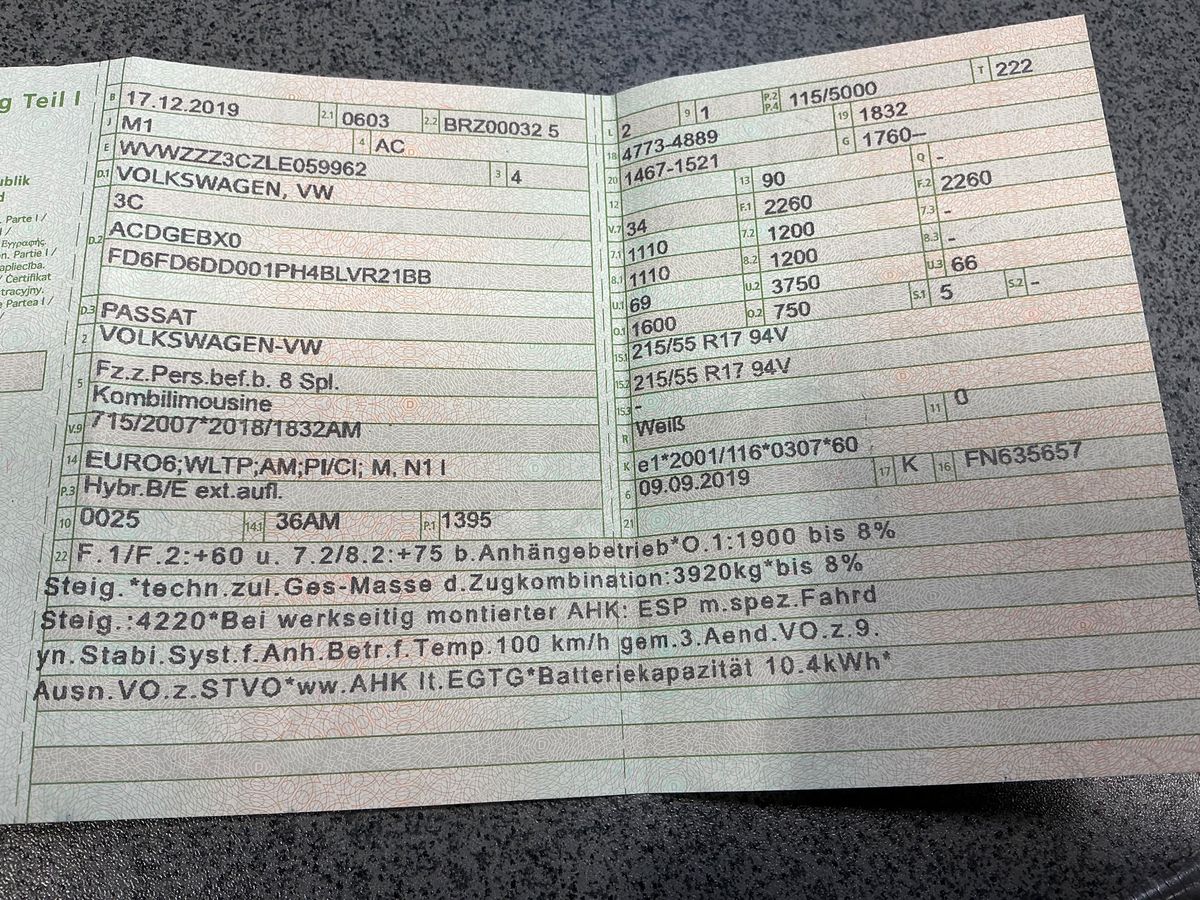 g Teil I
ublik
d
. Parte I /
I /
Εγγραφής.
n. Partie I /
apliecība.
/ Certificat
tracyjny.
e Partea I /
/
B 17.12.2019 2.1 0603 2.2 BRZ00032 5
J M1 4 AC
E WVWZZZ3CZLE059962 3 4
D.1 VOLKSWAGEN, VW
3C
D.2 ACDGEBX0
FD6FD6DD001PH4BLVR21BB
D.3 PASSAT
2 VOLKSWAGEN-VW
5 Fz.z.Pers.bef.b. 8 Spl.
Kombilimousine
V.9 715/2007*2018/1832AM
14 EURO6;WLTP;AM;PI/CI; M, N1 I
P.3 Hybr.B/E ext.aufl.
10 0025 14.1 36AM P.1 1395
L 2 9 1 P.2 P.4 115/5000 T 222
18 4773-4889 19 1832
20 1467-1521 G 1760–
12 13 90 Q -
V.7 34 F.1 2260 F.2 2260
7.1 1110 7.2 1200 7.3 -
8.1 1110 8.2 1200 8.3 -
U.1 69 U.2 3750 U.3 66
O.1 1600 O.2 750 S.1 5 S.2 -
15.1 215/55 R17 94V
15.2 215/55 R17 94V
15.3 -
R Weiß 11 0
K e1*2001/116*0307*60
6 09.09.2019 17 K 16 FN635657
21
22 F.1/F.2:+60 u. 7.2/8.2:+75 b.Anhängebetrieb*O.1:1900 bis 8%
Steig.*techn.zul.Ges-Masse d.Zugkombination:3920kg*bis 8%
Steig.:4220*Bei werkseitig montierter AHK: ESP m.spez.Fahrd
yn.Stabi.Syst.f.Anh.Betr.f.Temp.100 km/h gem.3.Aend.VO.z.9.
Ausn.VO.z.STVO*ww.AHK lt.EGTG*Batteriekapazität 10.4kWh*